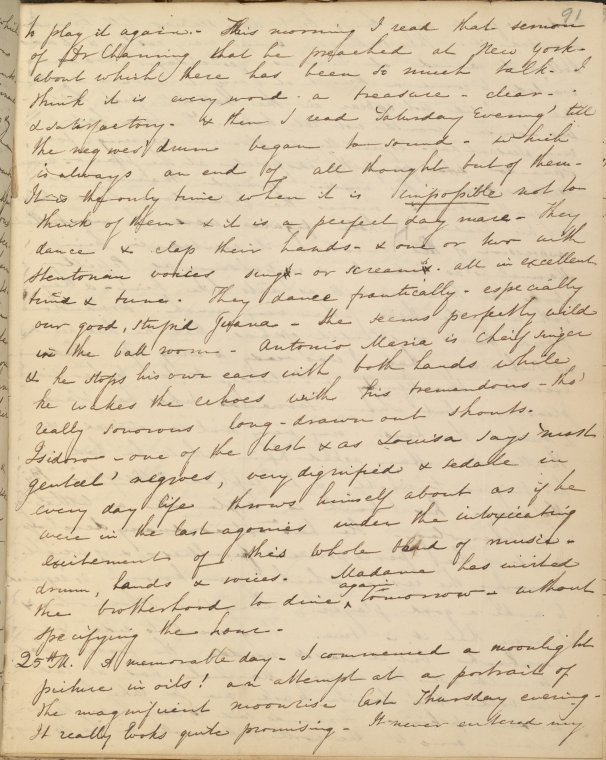 91
to play it again. - This morning I read that sermon
of Dr Channing that he preached at New York -
about which there has been so much talk - I
think it is every word a treasure - clear -
& satisfactory - & then I read Saturday Evening' till
the negroes' drum began to sound - which
is always an end of all thought but of them -
It is the only time when it is impossible not to
think of them - & it is a perfect day mare - They
dance & clap their hands - & one or two with
stentorian voices sing - or scream - all in excellent
time & tune - They dance frantically - especially
our good, stupid Juana - She seems perfectly wild
in the ball room - Antonio Maria is chief singer
& he stops his own ears with both hands while
he wakes the echoes with his tremendous - tho'
really sonorous long-drawn out shouts.
Isidoro - one of the best & as Louisa says 'most
genteel' negroes, very dignified & sedate in
every day life throws himself about as if he
were in the last agonies under the intoxicating
excitement of this whole band of music -
drum, hands & voices. Madame has invited
the brotherhood to dine again tomorrow - without
specifying the hour -
25th. A memorable day - I commenced a moonlight
picture in oils! an attempt at a portrait of
the magnificent moonrise last Thursday evening -
It really looks quite promising - It never entered my